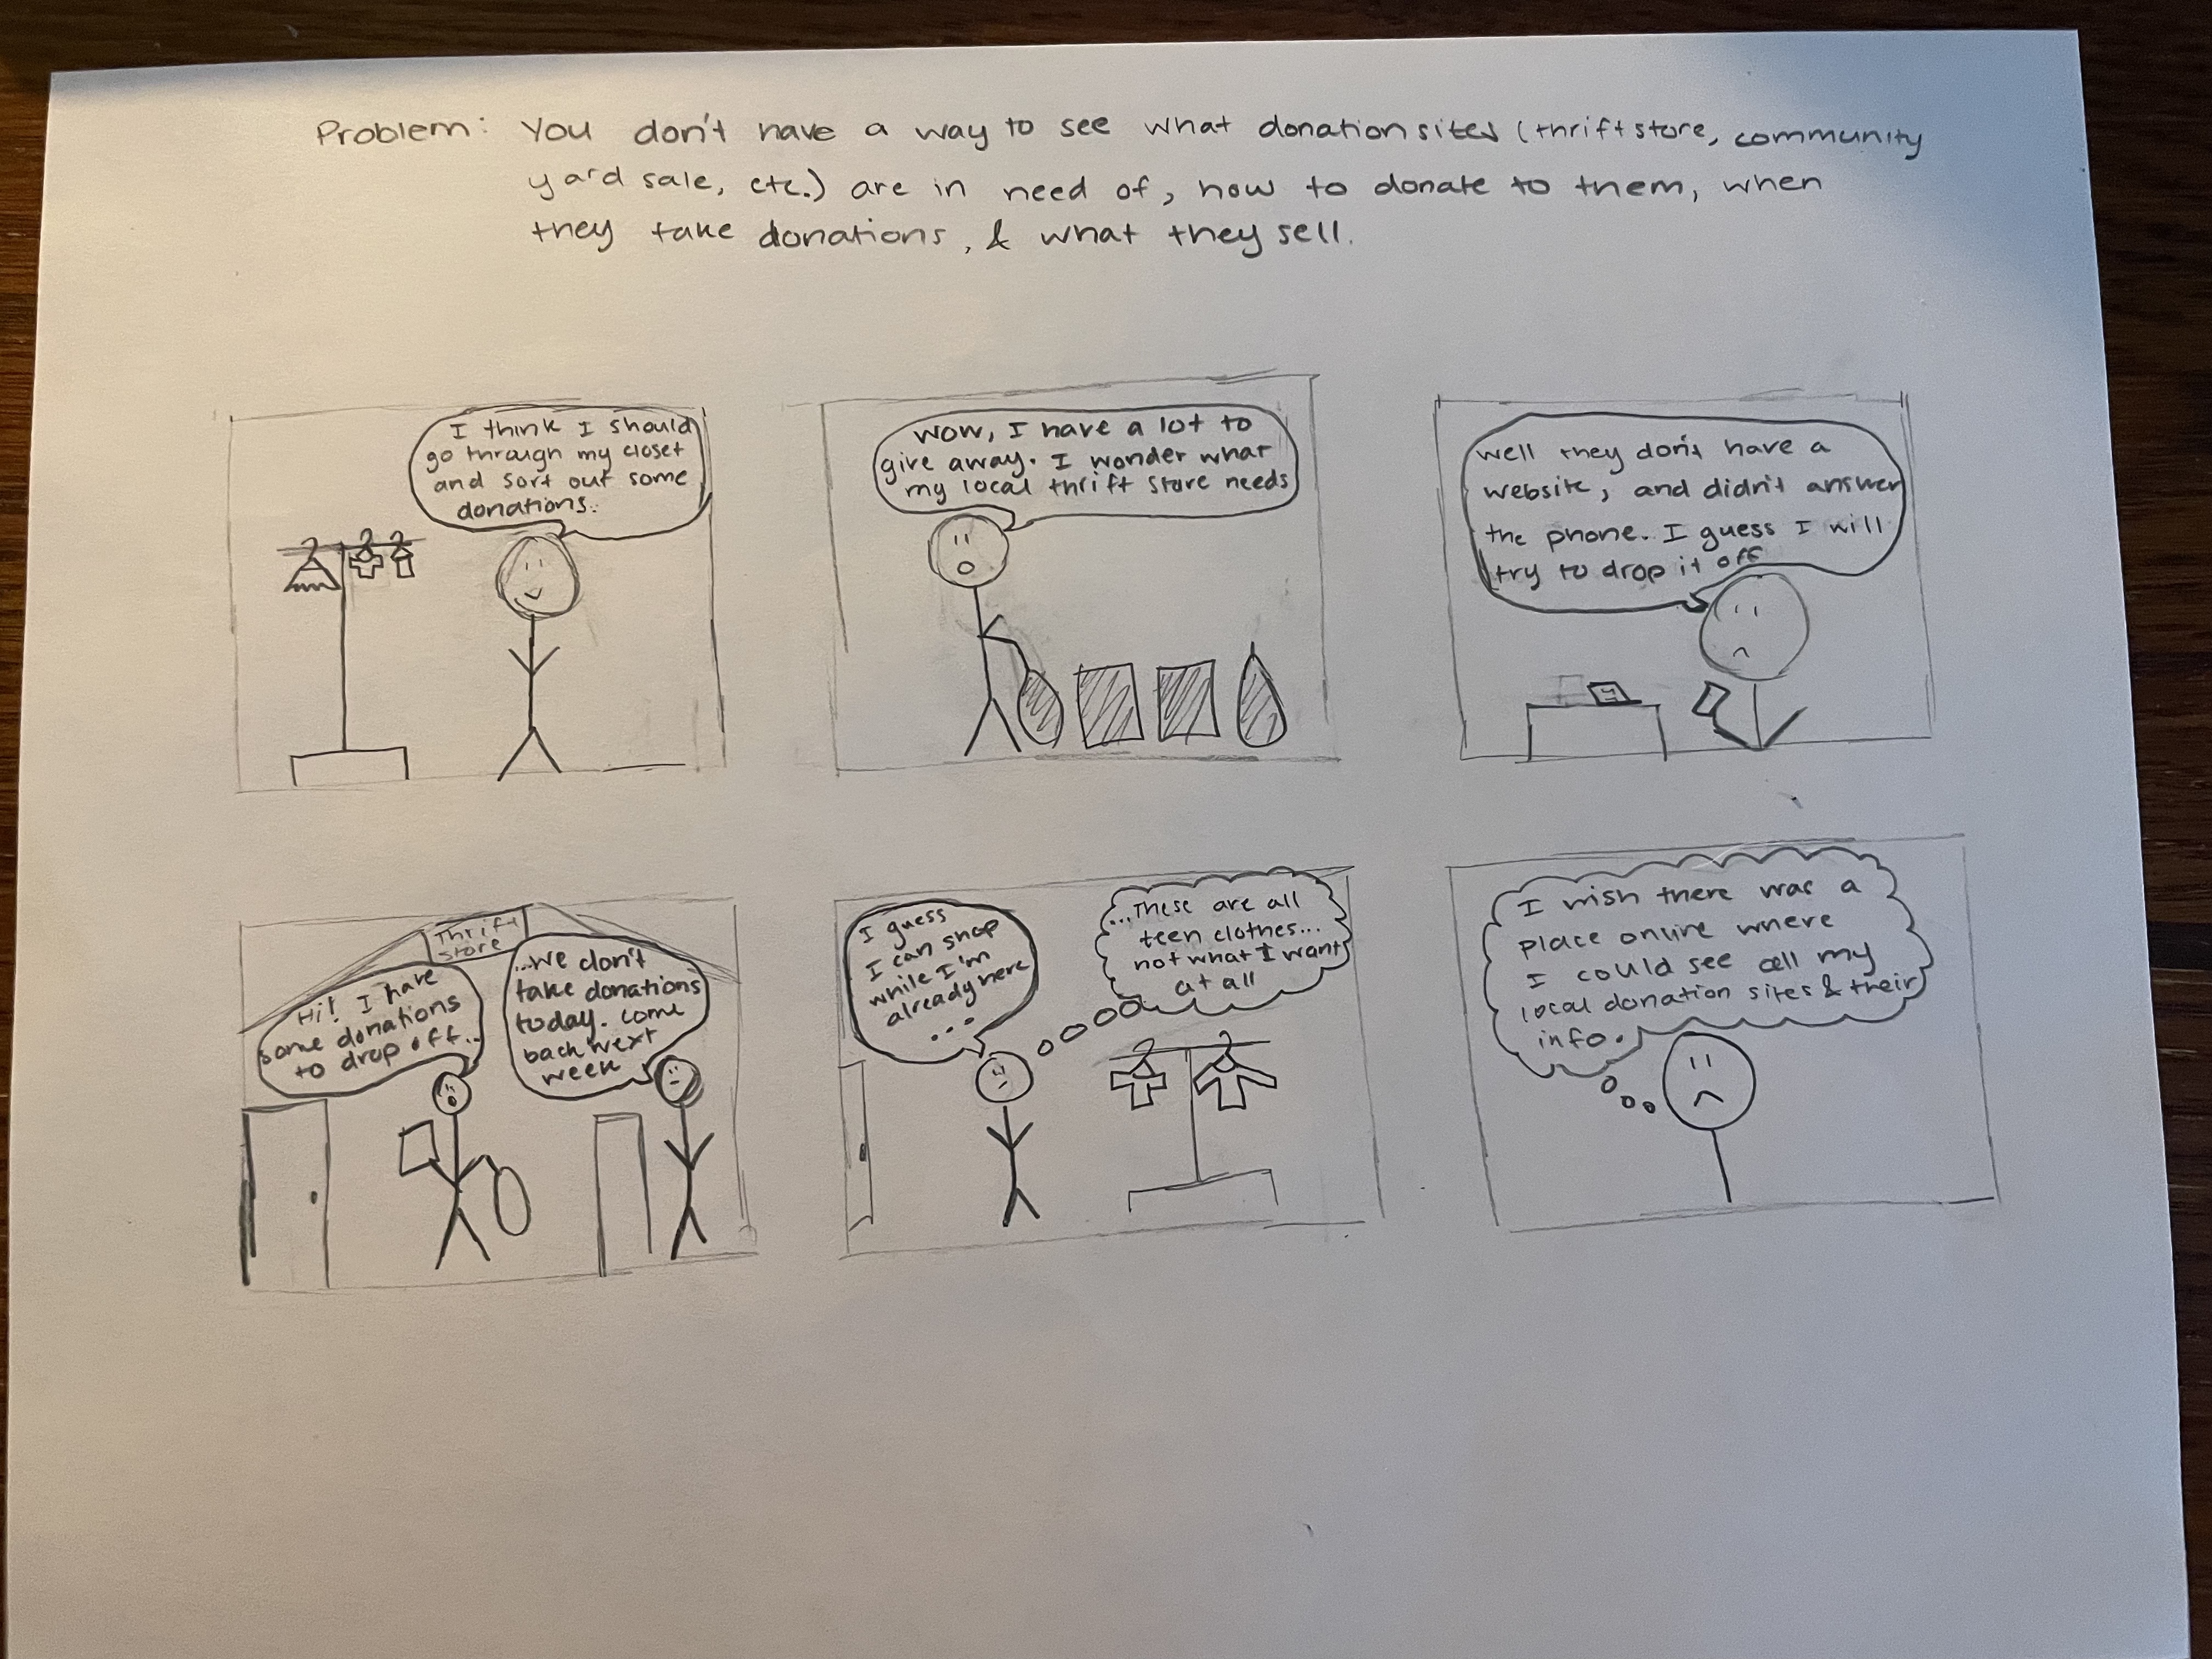 Problem: You don't have a way to see what donation sites (thrift store, community
yard sale, etc.) are in need of, how to donate to them, when
they take donations, & what they sell.
I think I should
go through my closet
and sort out some
donations.
Wow, I have a lot to
give away. I wonder what
my local thrift store needs
well they don't have a
website, and didn't answer
the phone. I guess I will
try to drop it off
Thrift
store
Hi! I have
some donations
to drop off...
...we don't
take donations
today. come
back next
week
I guess
I can shop
while I'm
already here
...
...These are all
teen clothes...
not what I want
at all
I wish there was a
place online where
I could see all my
local donation sites & their
info.